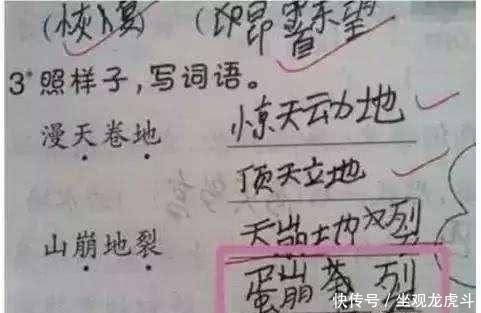 (恢复) (昂首东望
3*照样子,写词语。
漫天卷地 惊天动地
顶天立地
山崩地裂 天崩地列
蛋崩 列
快传号/坐观龙虎斗